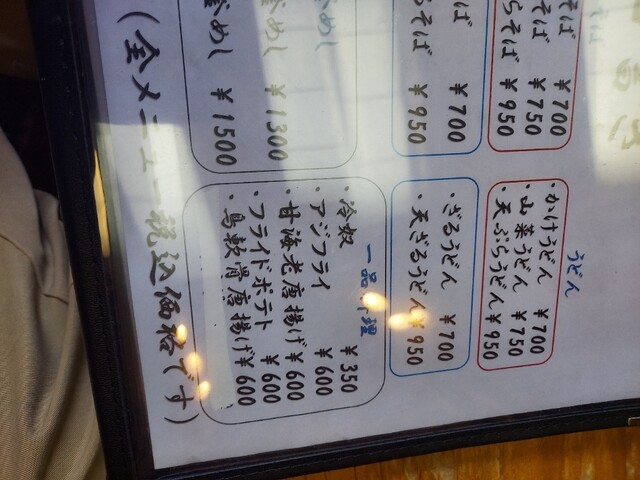 そば ¥700
そば ¥750
らそば ¥950
ば ¥700
そば ¥950
めし
めし ¥1300
釜めし ¥1500
うどん
・かけうどん ¥700
・山菜うどん ¥750
・天ぷらうどん ¥950
・ざるうどん ¥700
・天ざるうどん ¥950
一品料理
・冷奴 ¥350
・アジフライ ¥600
・甘海老唐揚げ ¥600
・フライドポテト ¥600
・鳥軟骨唐揚げ ¥600
(全メニュー税込価格です)